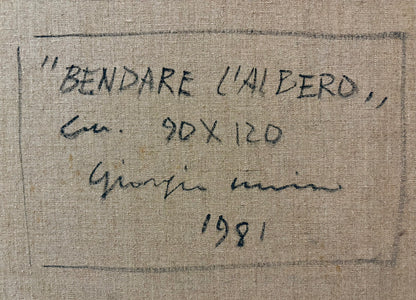 "BENDARE L'ALBERO"
cm. 90X120
Giorgio
1981